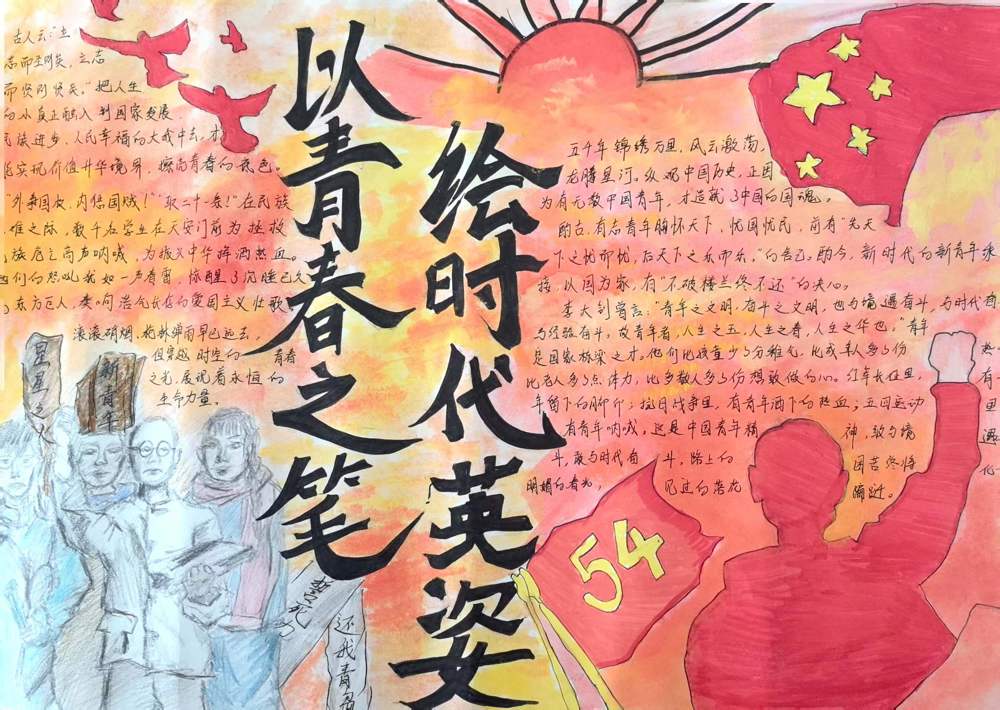 以青春之笔
绘时代英姿
古人云："立
志而圣则圣，立志
而贤则贤矣。"把人生
的小真正融入到国家发展、
民族进步、人民幸福的大我中去，才
能实现价值升华境界，擦亮青春的底色。
"外争国权，内惩国贼！""取二十一条！"在民族
危难之际，数千名学生在天安门前为拯救
民族危亡高声呐喊，为振兴中华挥洒热血。
他们的怒吼犹如一声春雷，惊醒了沉睡已久
的东方巨人，奏响浩气长存的爱国主义壮歌。
滚滚硝烟，枪林弹雨早已远去，
但穿越时空的青春
之光，展现着永恒的
生命力量。
五千年锦绣万里，风云激荡，
龙腾星河。纵观中国历史，正因
为有无数中国青年，才造就了中国的国魂。
酌古，有志青年胸怀天下，忧国忧民，前有"先天
下之忧而忧，后天下之乐而乐。"的信己。酌今，新时代的新青年承
接，以国为家，有"不破楼兰终不还"的决心。
李大钊曾言："青年之文明，奋斗之文明，也与境遇奋斗，与时代奋
与经验奋斗。故青年者，人生之王，人生之春，人生之华也。"青年
是国家栋梁之才，他们比孩童少了分稚气，比成年人多了份
比老人多了点体力，比多数人多了份想敢做的心。红军长征里，
年留下的脚印；抗日战争里，有青年洒下的热血；五四运动
有青年呐喊。这是中国青年精神，敢与境
斗，敢与时代奋斗，陌上的
困苦终将
明媚的春光，见过的落花
踽踽。
新青年
54
誓死力
还我青岛